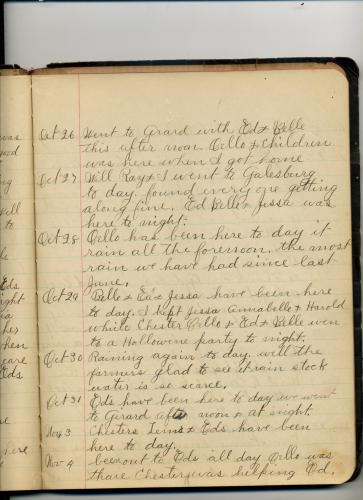 Oct 26 Went to Girard with Ed & Belle
this after noon Orllo & children
was here when I got home
Oct 27 Will Ray & I went to Galesburg
to day. found every one getting
along fine. Ed Belle & Jessa was
here to night.
Oct 28 Orllo has been here to day it
rain all the forenoon. the most
rain we have had since last
June.
Oct 29 Belle & Ed & Jessa have been here
to day. I kept Jessa Annabelle & Harold
while Chester Orllo & Ed & Belle wen
to a Hallowine party to night.
Oct 30 Raining again to day. will the
farmers glad to see it rain stock
water is so scarce.
Oct 31 Eds have been here to day we went
to Girard after noon & at night.
Nov 3 Chesters & Eds have been
here to day.
Nov 4 been out to Eds all day Orllo was
thare Chester was helping Ed.
was
good
ng
Will
to
Eds
ight
her
hen
care
Eds
re
here